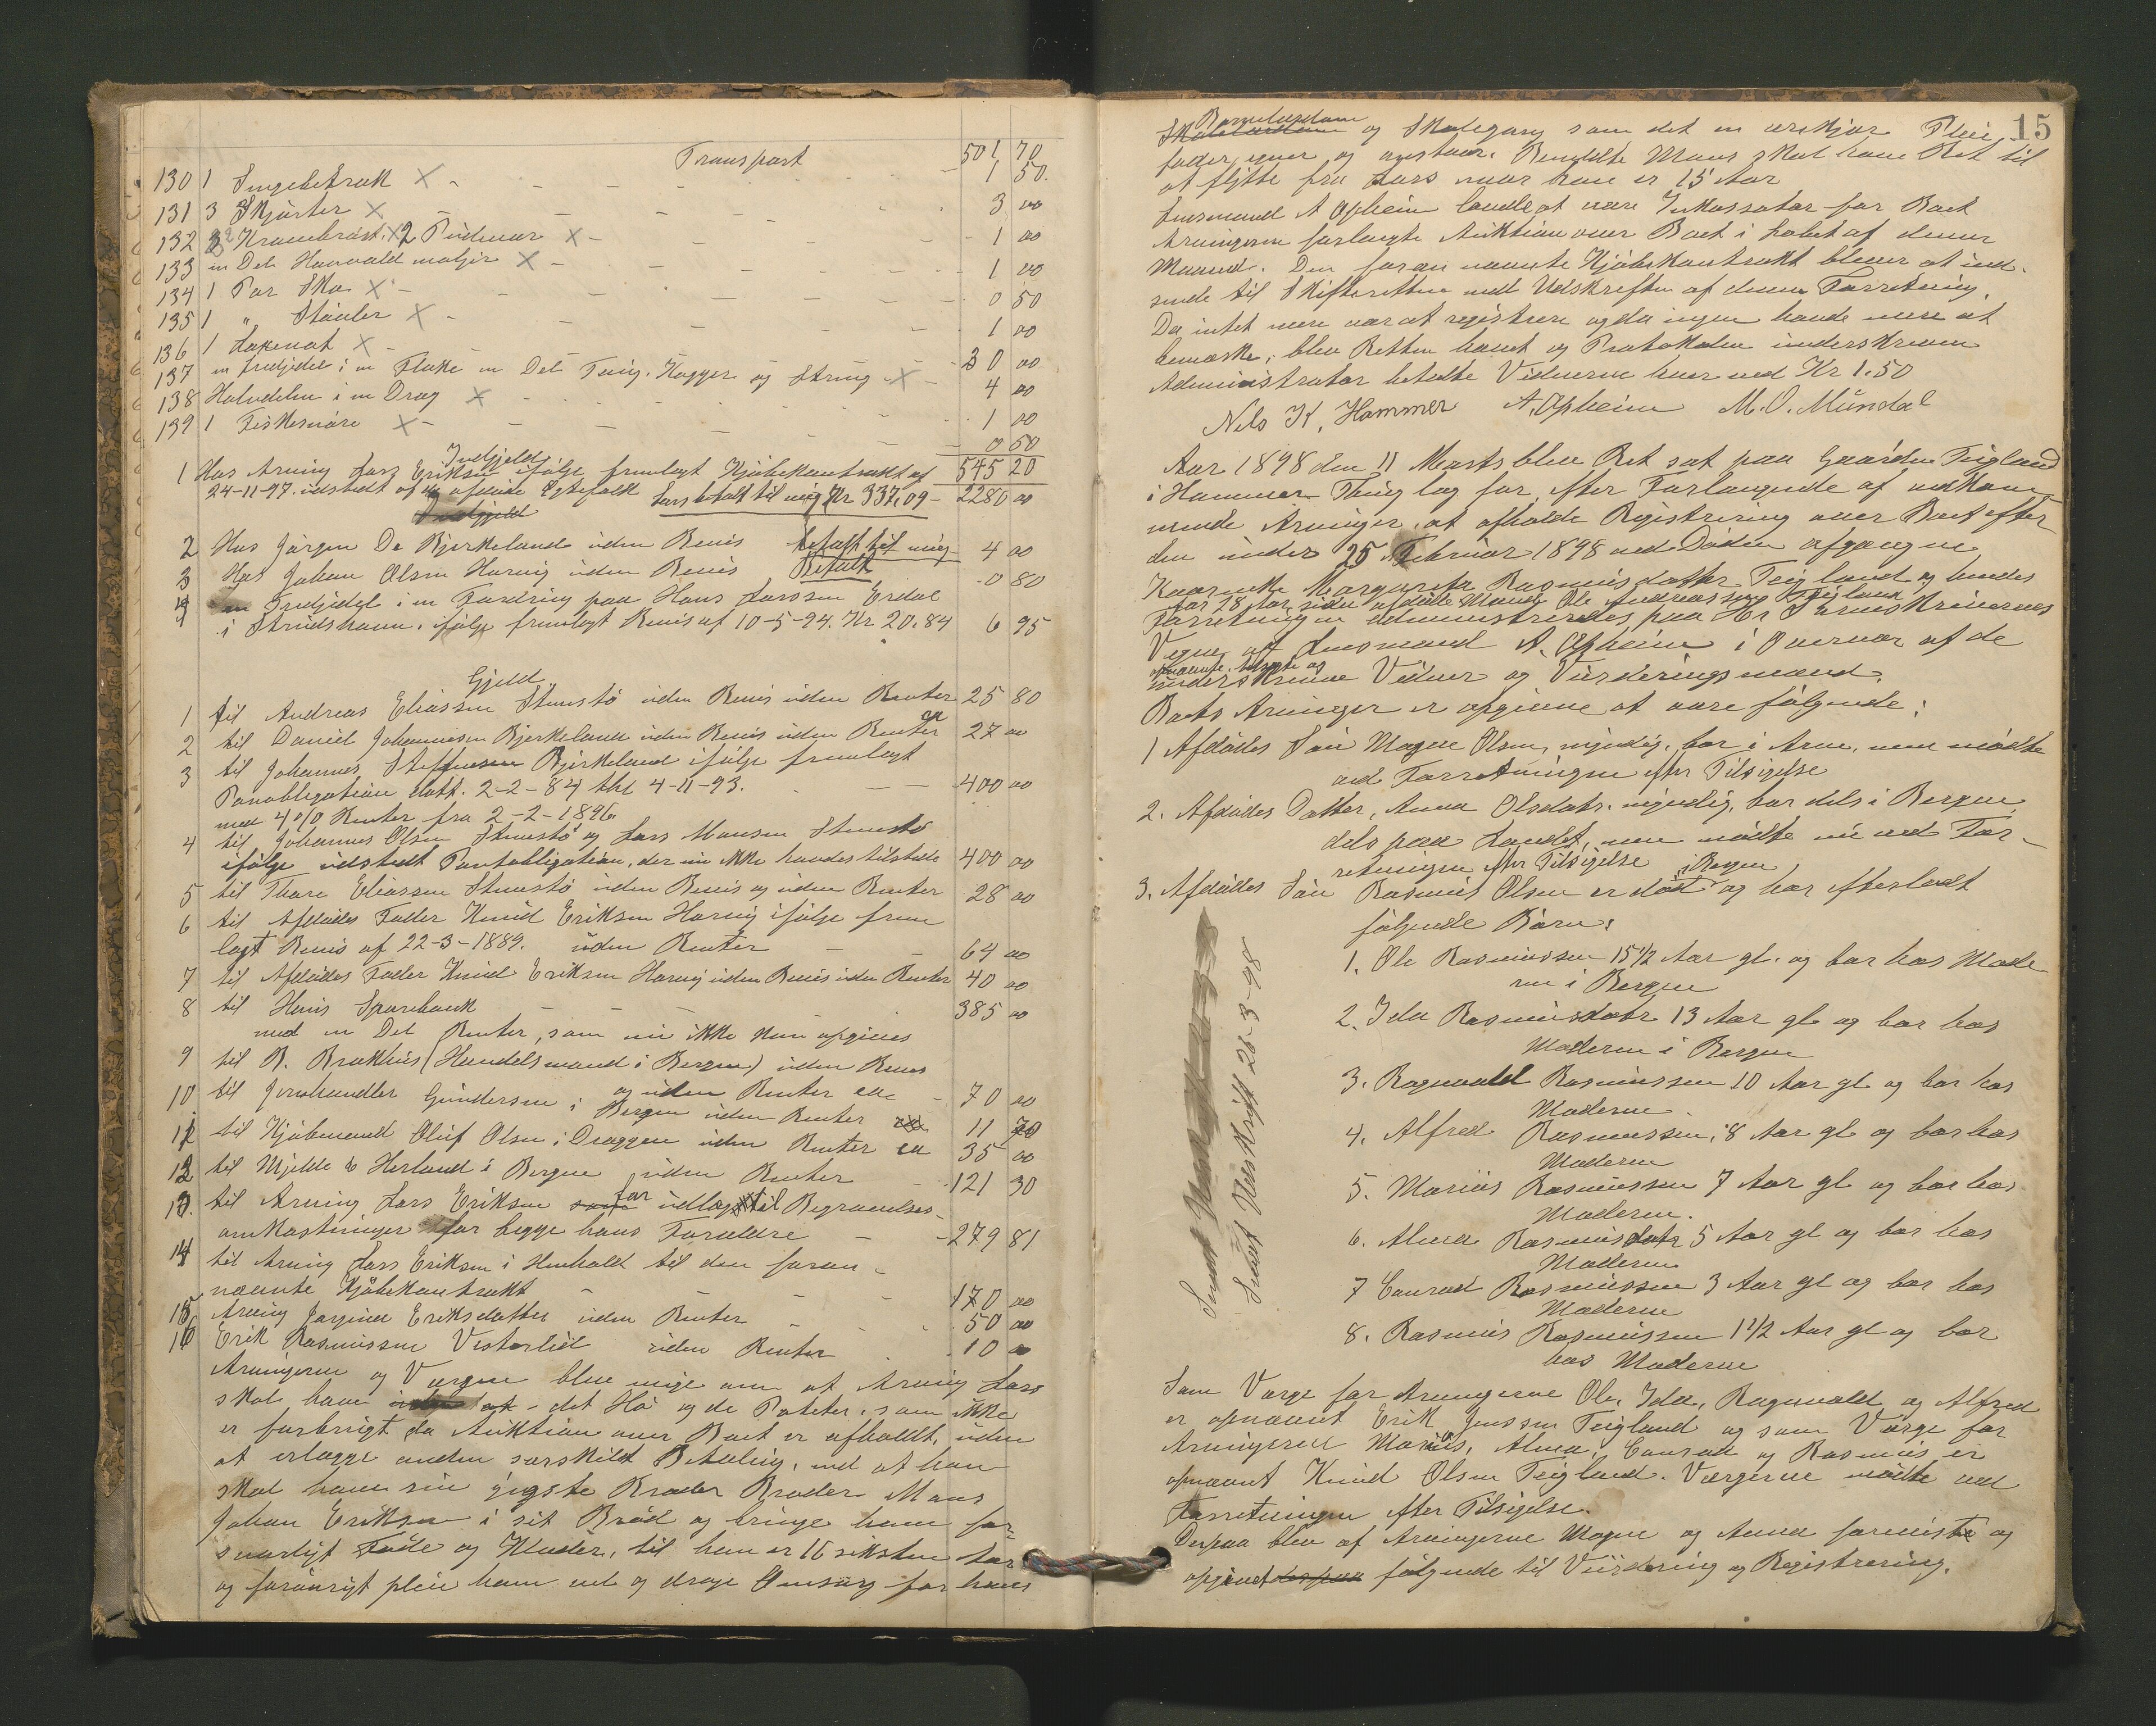 Transport 501 70
130 1 Sengebetræk × 1 50
131 3 Skjorter × 3 00
132 2 Krambrøst × 2 Pudevar × 1 00
133 en Del Haavald maljer × 1 00
134 1 Par Sko × 0 50
135 1 " Støvler × 1 00
136 1 Laxenot × 30 00
137 en Tredjedel i en Flake en Del Toug, Kagger og Streng × 4 00
138 Halvdelen i en Dræg × 1 00
139 1 Fiskesnøre × 0 50
Indgjeld 545 20
1 Hos Arving Lars Eriksen ifølge fremlagt Kjøbekontrakt af
24-11-97 udstedt af de afdøde Egtefolk Lars betalt til mig Kr 337,09 - 2280 00
Indgjeld
2 Hos Jørgen De Bjerkeland uden Bevis betalt til mig 4 00
3 Hos Johan Olsen Hervig uden Bevis Betalt 0 80
4 en Tredjedel i en Fordring paa Hans Larssen Erdal
i Strudshavn, ifølge fremlagt Bevis af 10-5-94. Kr 20.84 6 95
Gjeld
1 til Andreas Eliassen Stunstø uden Bevis uden Renter 25 80
2 til Daniel Johannesen Bjerkeland uden Bevis uden Renter ca 27 00
3 til Johannes Steffensen Bjerkeland ifølge fremlagt
Panobligation datt. 2-2-84 thl 4-11-93. 400 00
med 4% Renter fra 2-2-1896
4 til Johannes Olsen Stunstø og Lars Monsen Stunstø
ifølge udstedt Pantobligation, der nu ikke havdes tilstede 400 00
5 til Thore Eliassen Stunstø uden Bevis og uden Renter 28 00
6 til Afdødes Fader Knud Eriksen Hervig ifølge frem
lagt Bevis af 22-3-1889. uden Renter 64 00
7 til Afdødes Fader Knud Eriksen Hervig uden Bevis uden Renter 40 00
8 til Hens Sparebank 385 00
med en Del Renter, som nu ikke kan opgives
9 til B. Brækhus (Handelsmand i Bergen) uden Bevis
og uden Renter ca 70 00
10 til Jernhandler Gundersen i Bergen uden Renter 11 70
11 til Kjøbmand Oluf Olsen i Dræggen uden Renter ca 35 00
12 til Mjelde & Herland i Bergen uden Renter 121 30
13. til Arving Lars Eriksen for udlæg til Begravelses-
omkostninger for begge hans Forældre 279 81
14 til Arving Lars Eriksen i Henhold til den foran-
nævnte Kjøbekontrakt 170 00
15 Arving Jorgina Eriksdatter uden Renter 50 00
16 Erik Rasmussen Vesterlid uden Renter 10 00
Arvingerne og Værgen blev enige om at Arving Lars
skal have det Hø og de Poteter, som ikke
er forbrugt da Auktion over Boet er afholdt, uden
at erlægge anden særskildt Betaling, ved at han
skal have sin yngste Broder Broder Mons
Johan Eriksen i sit Brød og bringe ham for-
svarligt Føde og Klæder, til han er 16 seksten Aar
og forøvrigt pleie ham vel og drage Omsorg for hans
15
Barnelærdom
Skolelærdom og Skolegang som det en ærekjær Pleie
fader egner og anstaar. Bemeldte Mons skal have Ret til
at flytte fra Lars naar han er 15 Aar
Lensmand A Opheim lovede at være Inkassator for Boet
Arvingerne forlangte Auktion over Boet i Løbet af denne
Maaned. Den foran nævnte Kjøbekontrakt bliver at ind-
sende til Skifteretten med Udskriften af denne Forretning.
Da intet mere var at registrere og da ingen havde mere at
bemærke, blev Retten hævet og Protokollen underskreven
Administrator betalte Vidnerne hver med Kr 1.50
Nils K. Hammer A. Opheim M. O. Mundal
Aar 1898 den 11 Marts blev Ret sat paa Gaarden Teigland
i Hammer Thinglag for, efter Forlangende af vedkom-
mende Arvinger, at afholde Registrering over Boet efter
den under 25 Februar 1898 ved Døden afgangne
Kaarenke Margareta Rasmusdatter Teigland og hendes
for 28 Aar siden afdøde Mand Ole Andreassen Teigland
Forretningen administreredes paa Hr Sorenskriverens
Vegne af Lensmand A. Opheim i Overvær af de
opnævnte, tilsagte og
underskrevne Vidner og Vurderingsmænd.
Boets Arvinger er opgivne at være følgende:
1 Afdødes Søn Mogne Olsen, myndig, bor i Arne, men mødte
ved Forretningen efter Tilsigelse
2. Afdødes Datter, Anna Olsdatr. myndig, bor dels i Bergen
dels paa Landet, men mødte nu ved For-
retningen efter Tilsigelse i Bergen
3. Afdødes Søn Rasmus Olsen er død og har efterladt
følgende Børn:
1. Ole Rasmussen 15 1/2 Aar gl. og bor hos Mode
ren i Bergen
2. Ida Rasmusdatr 13 Aar gl og bor hos
Moderen i Bergen
3. Ragnvald Rasmussen 10 Aar gl og bor hos
Moderen.
4. Alfred Rasmussen, 8 Aar gl og bor hos
Moderen
5. Marius Rasmussen 7 Aar gl og bor hos
Moderen.
6. Alma Rasmusdatr 5 Aar gl og bor hos
Moderen
7 Conrad Rasmussen 3 Aar gl og bor hos
Moderen
8. Rasmus Rasmussen 1 1/2 Aar gl og bor
hos Moderen
Sendt Udskrift 26-3-98
Som Værge for Arvingerne Ole, Ida, Ragnvald og Alfred
er opnævnt Erik Jenssen Teigland og som Værge for
Arvingerne Marius, Alma, Conrad og Rasmus er
opnævnt Knud Olsen Teigland. Værgerne mødte ved
Forretningen efter Tilsigelse.
Derpaa blev af Arvingerne Mogne og Anna forevist og
opgivet derpaa følgende til Vurdering og Registrering.